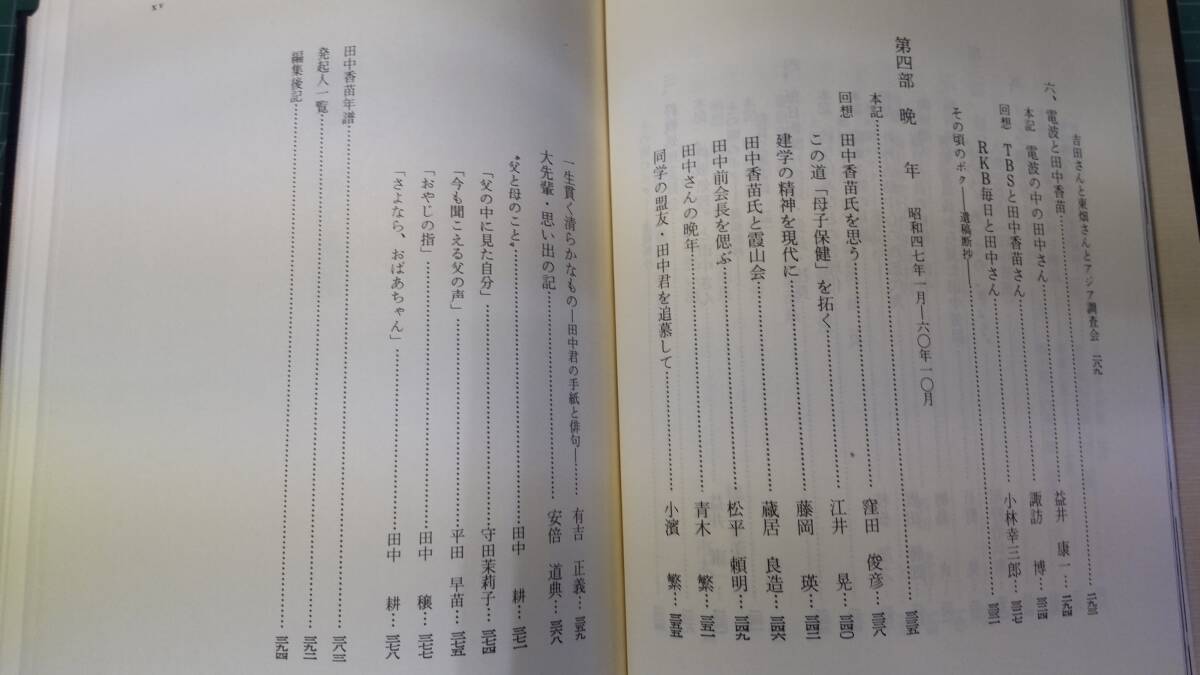 吉田さんと東畑さんとアジア調査会 二六九
六、電波と田中香苗……二九三
本記 電波の中の田中さん……益井 康一…二九四
回想 TBSと田中香苗さん……諏訪 博…三二四
RKB毎日と田中さん……小林幸三郎…三二七
その頃のボク――遺稿断抄――……三三一
第四部 晩年 昭和四七年一月―六〇年一〇月……三三五
本記……窪田 俊彦…三三八
回想 田中香苗氏を思う……江井 晃…三四〇
この道「母子保健」を拓く……藤岡 瑛…三四二
建学の精神を現代に……蔵居 良造…三四六
田中香苗氏と霞山会……松平 頼明…三四九
田中前会長を偲ぶ……青木 繁…三五一
田中さんの晩年……小濱 繁…三五五
同学の盟友・田中君を追慕して……
一生貫く清らかなもの―田中君の手紙と俳句――……有吉 正義…三五九
大先輩・思い出の記……安倍 道典…三六八
“父と母のこと”……田中 耕…三七一
「父の中に見た自分」……守田茉莉子…三七四
「今も聞こえる父の声」……平田 早苗…三七五
「おやじの指」……田中 穣…三七七
「さよなら、おばあちゃん」……田中 耕…三七八
田中香苗年譜……三八三
発起人一覧……三九二
編集後記……三九四
xv